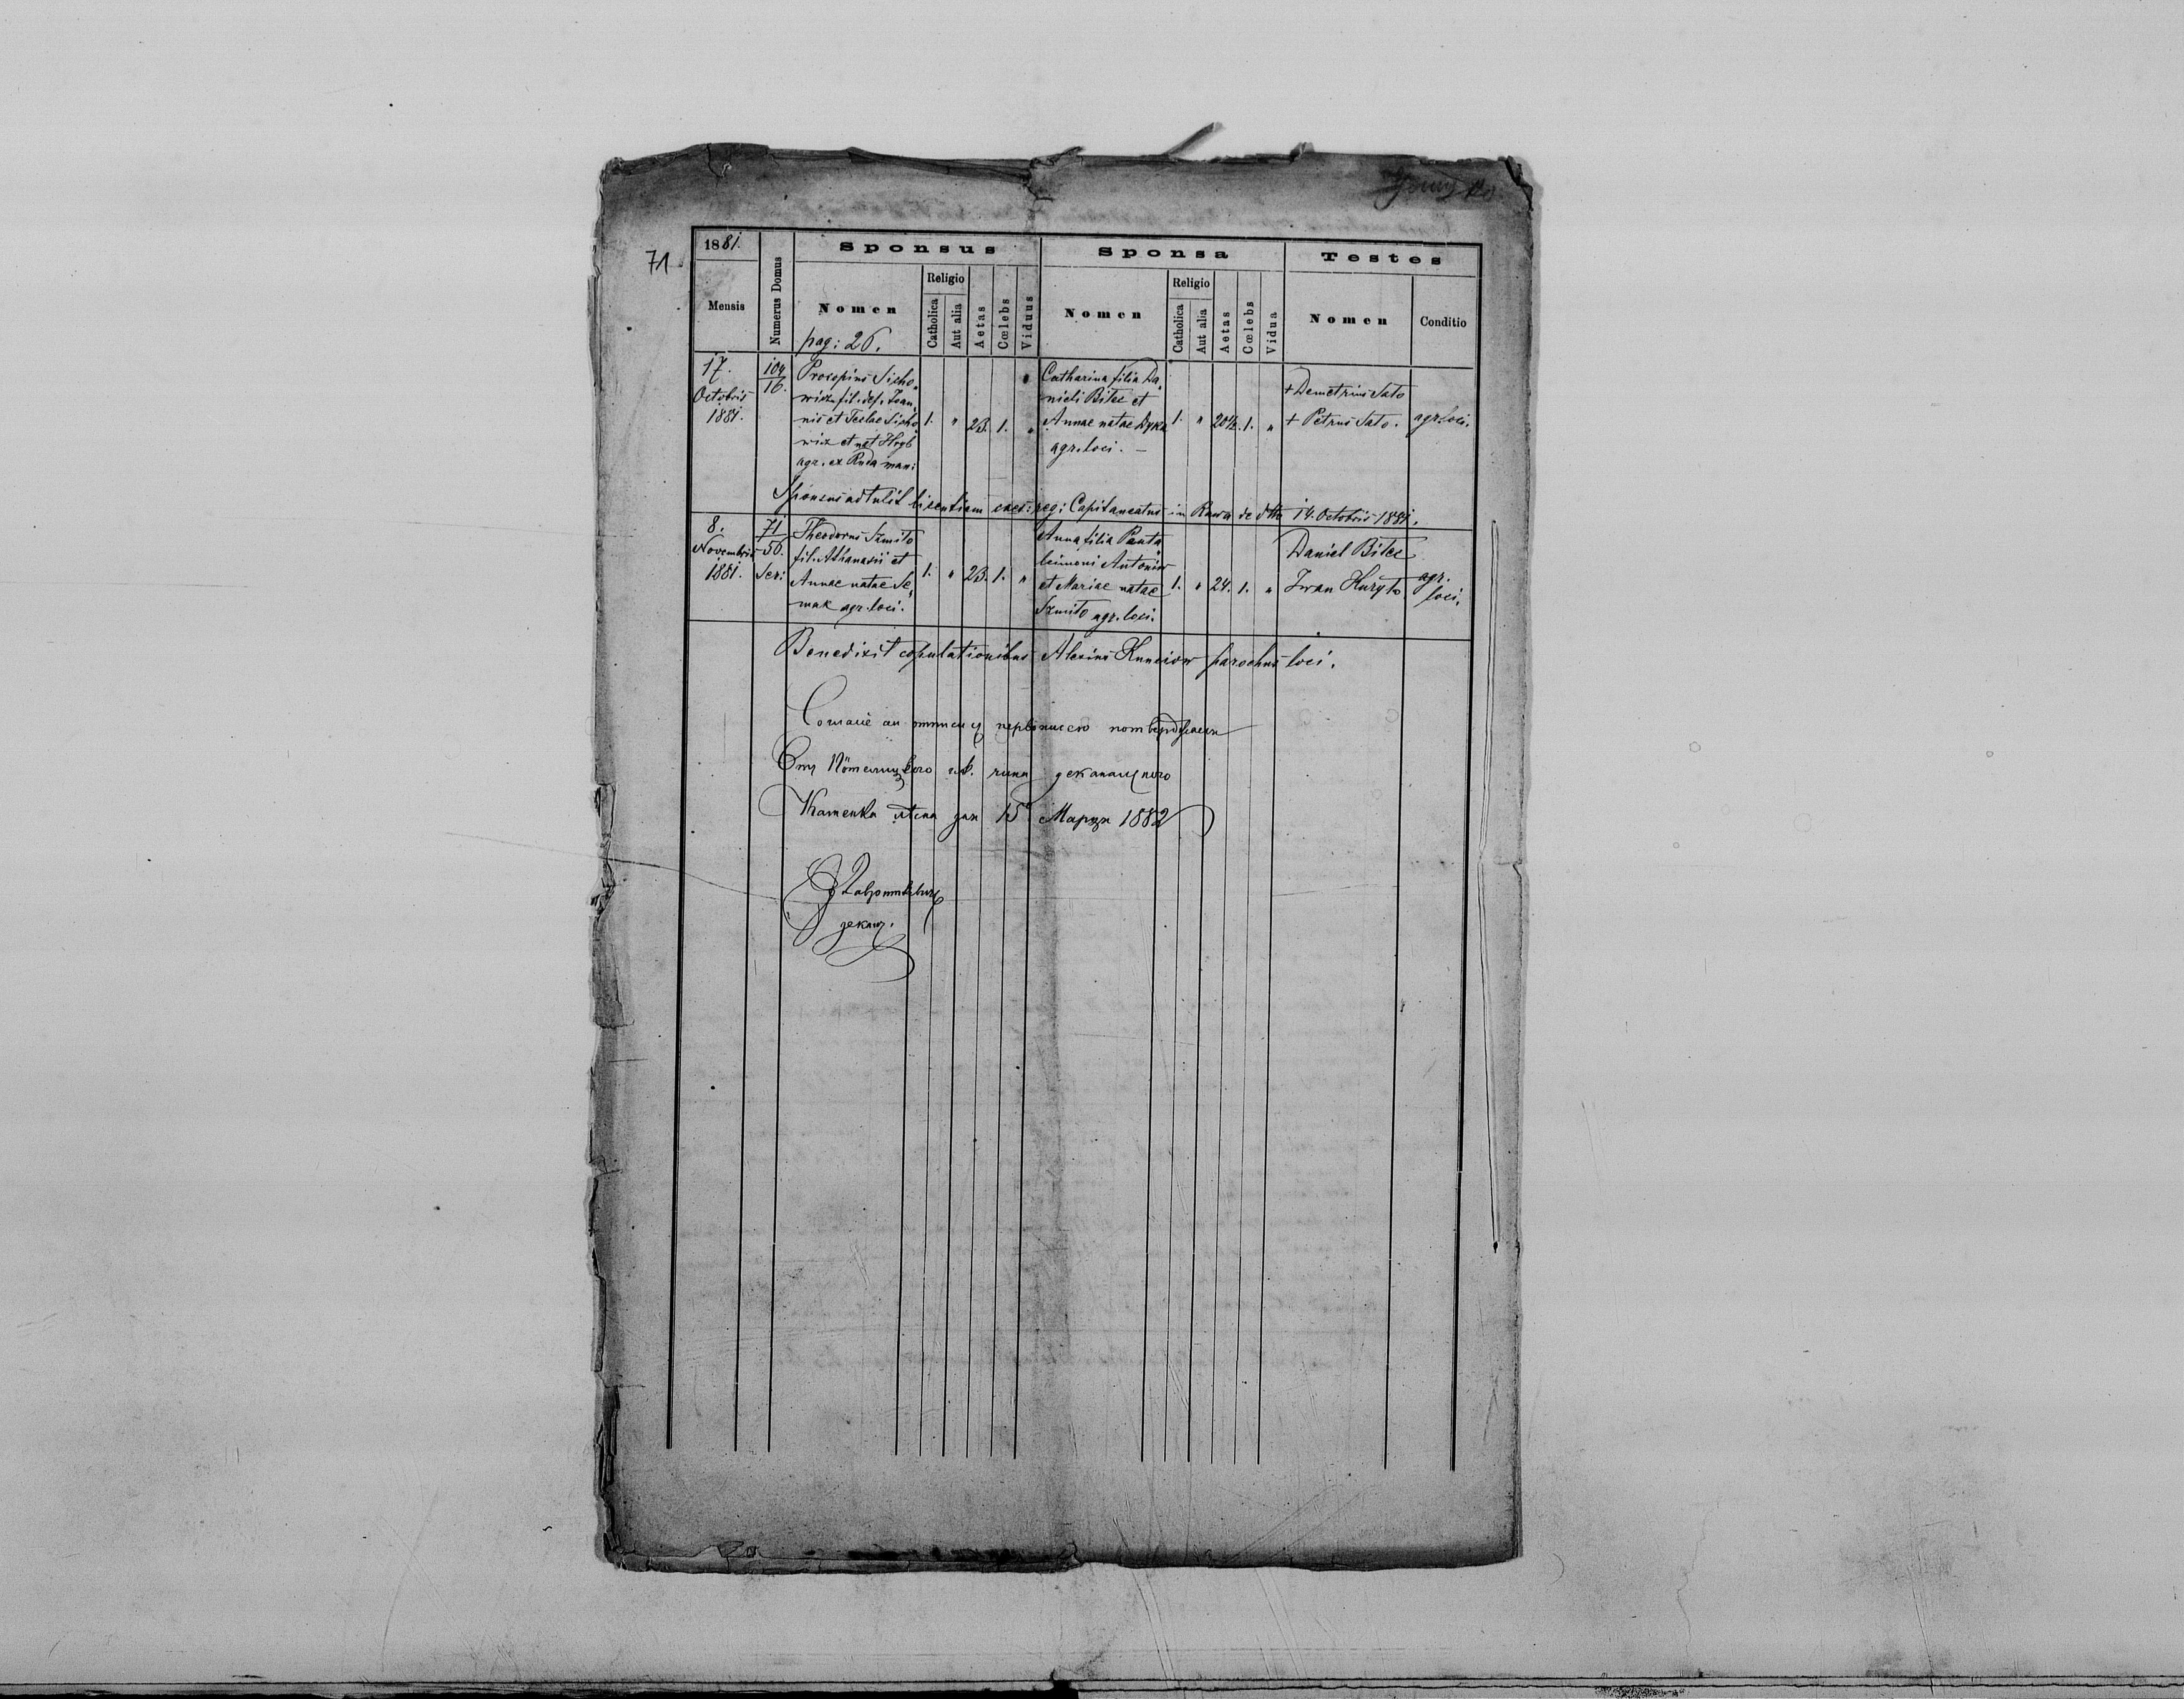 71.
1881.
Mensis
Numerus Domus
Sponsus
Nomen
pag: 26.
Religio
Catholica
Aut alia
Aetas
Cœlebs
Viduus
Sponsa
Nomen
Religio
Catholica
Aut alia
Aetas
Cœlebs
Vidua
Testes
Nomen
Conditio
17.
Octobris
1881.
104
16.
Procopius Sicho„
wicz fil. def. Ioan„
nis et Teclae Sicho„
wicz et nat Hryb
agr. ex Ruda man:
1. " 23. 1. "
Catharina filia Da„
nieli Bilec et
Annae natae Dyka
agr. loci. —
1. " 20½. 1. "
+ Demetrius Sato
+ Petrus Sato.
agr. loci.
Sponsus adtulit licentiam caes: reg: Capitaneatus in Rawa de dtto 14. Octobris 1881.
8.
Novembris
1881.
71
56.
Ser:
Theodorus Szmito
fil. Athanasii et
Annae natae Se„
mak agr. loci.
1. " 23. 1. "
Anna filia Panta
leimoni Antoniw
et Mariae natae
Szmito agr. loci.
1. " 24. 1. "
Daniel Bilec
Iwan Huryto
agr.
loci.
Benedixit copulationibus Alexius Kunciow parochus loci.
потверджаеся
Отъ деканального
Каменка дня 15 Марця 1882
деканъ.